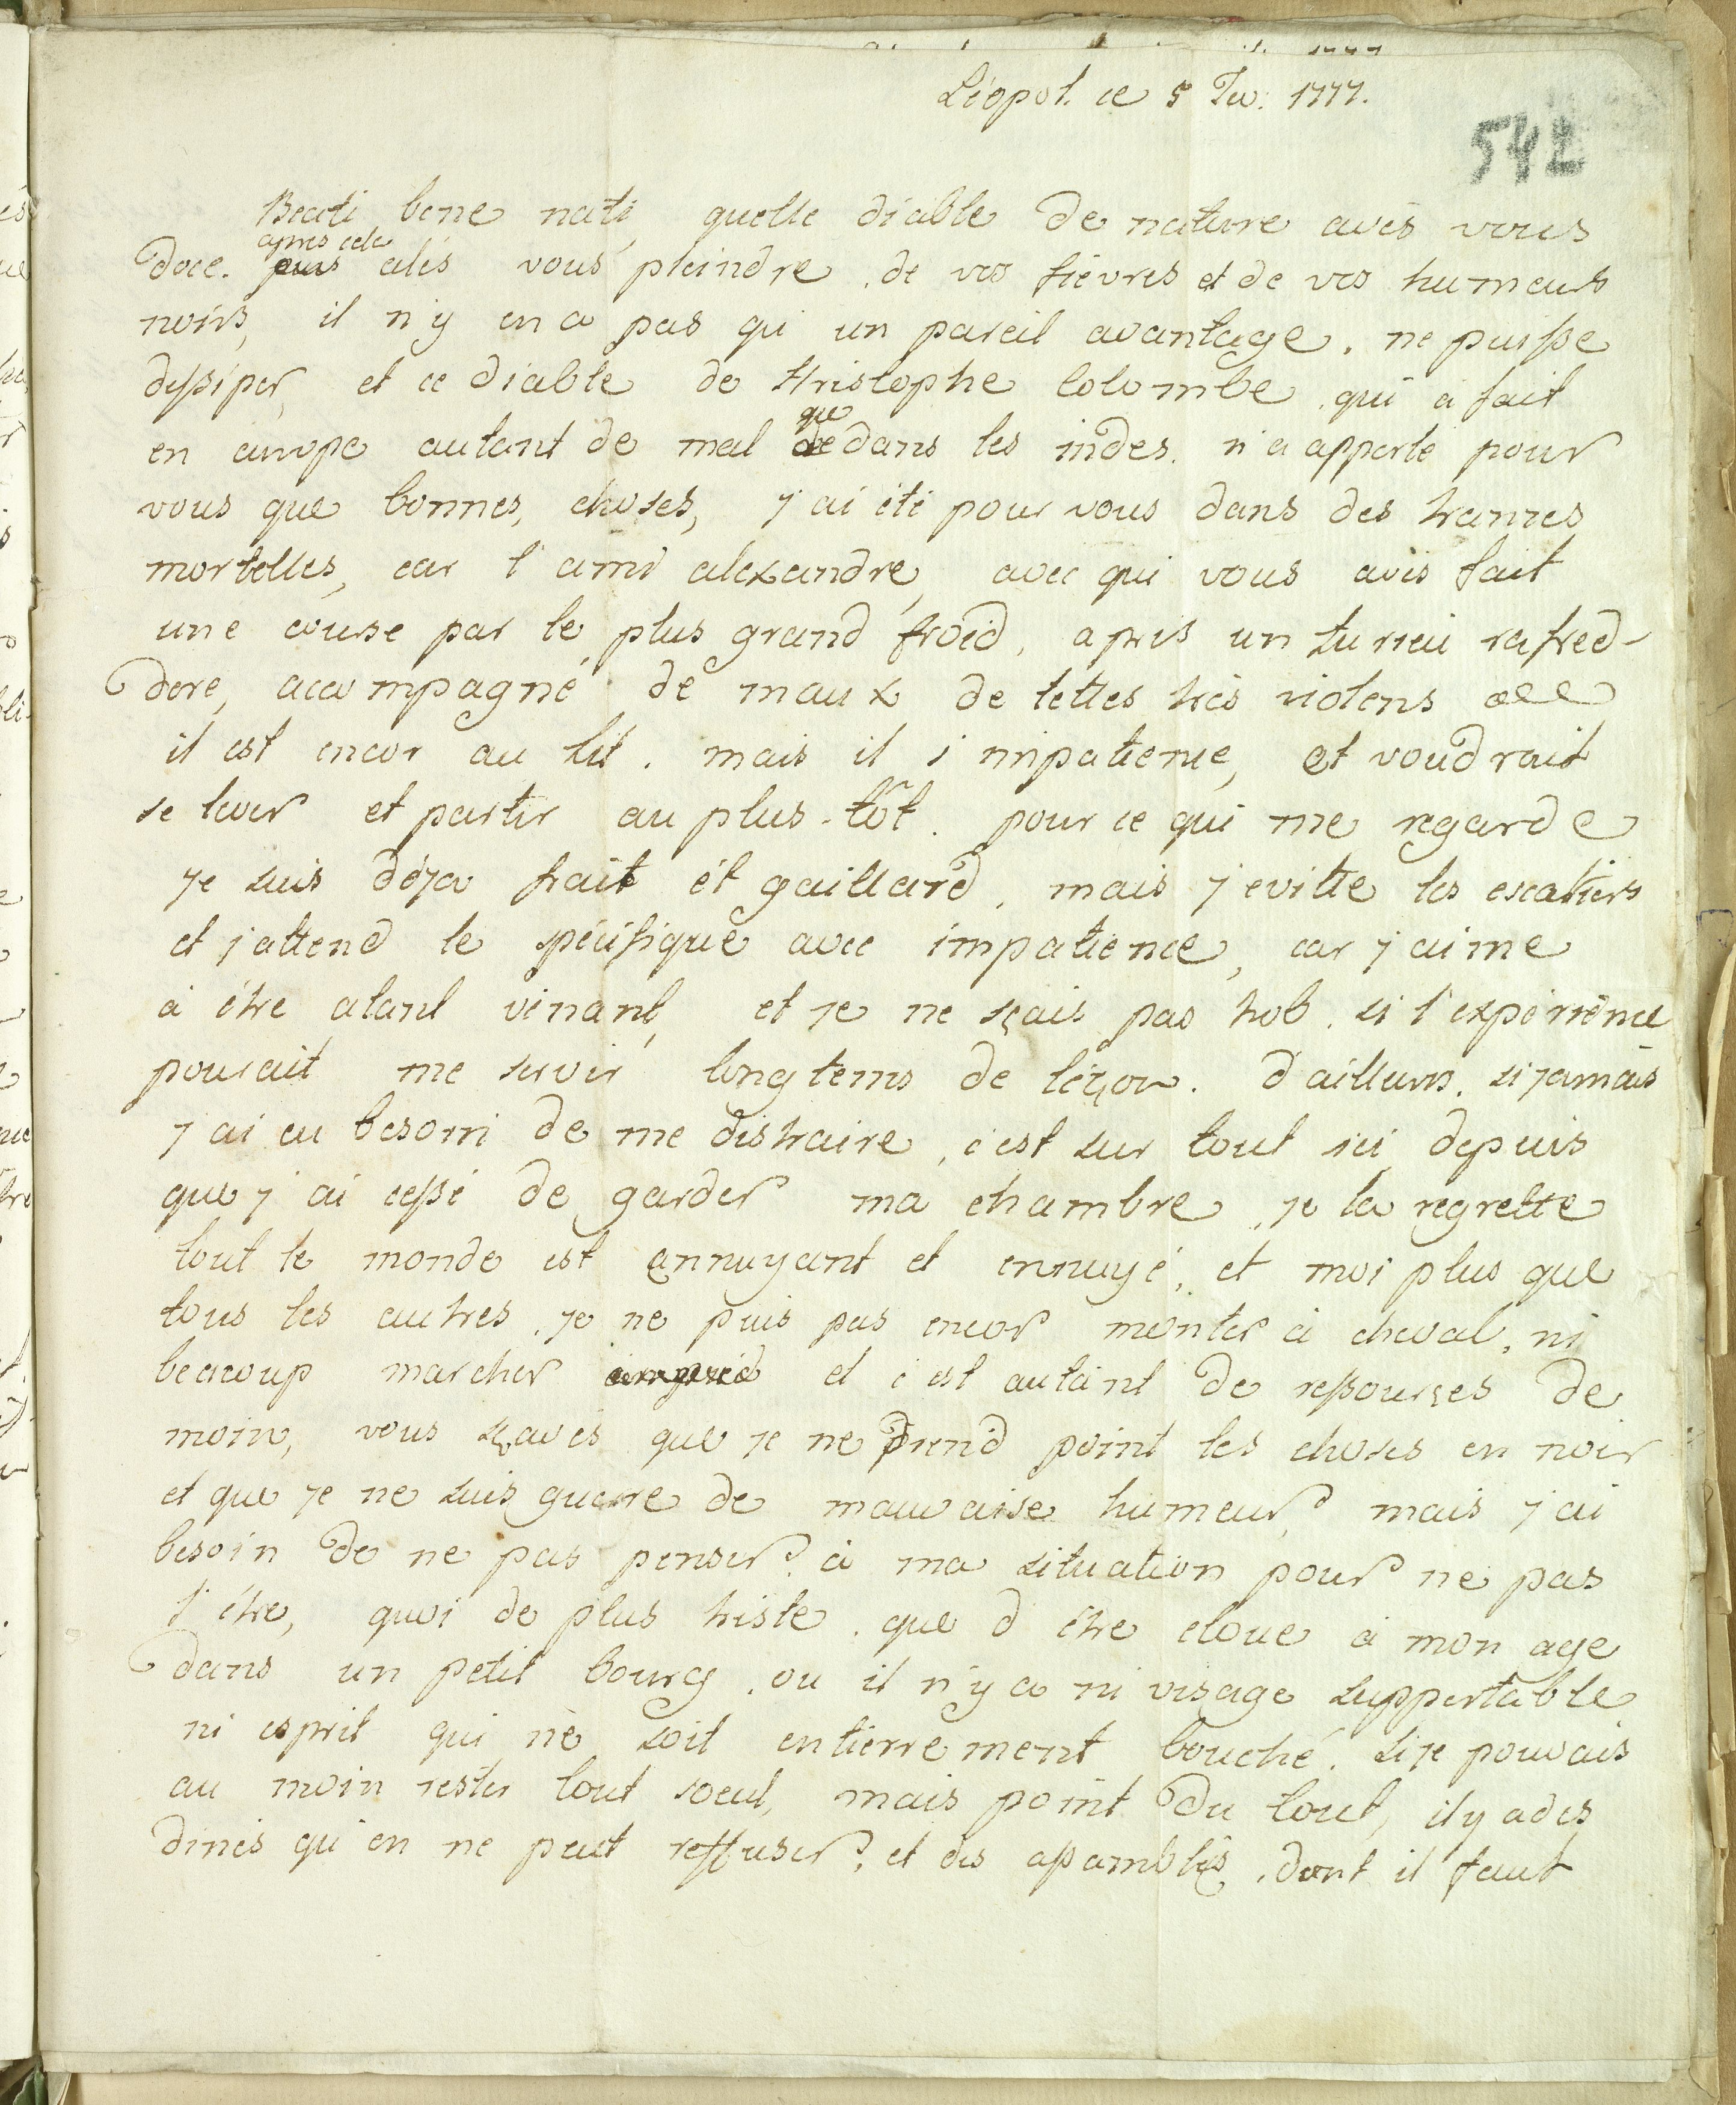 Léopol. ce 5 Fev. 1777.
542
Beati bene nati, quelle diable de nature avés vous
donc. après cela alés vous pleindre, de vos fièvres et de vos humeurs
noirs, il n'y en a pas qu'un pareil avantage, ne puisse
dissiper, et ce diable de Kristophe Colombe, qui a fait
en europe autant de mal que dans les indes, n'a apporté pour
vous que bonnes, choses, j'ai été pour vous dans des transes
mortelles, car l'ami alexandre, avec qui vous avés fait
une course par le plus grand froid, a pris un furieu rafred-
dore, accompagné de maux de tettes très violens
il est encor au lit. mais il s'impatiente, et voudrait
se lever et partir au plus-tôt. pour ce qui me regarde
je suis déja frait et gaillard, mais j'evitte les escaliers
et j'attend le spécifique avec impatience, car j'aime
à être alant vinant, et je ne sçais pas trob, si l'expérience
pourait me servir longtems de léçon. d'ailleurs, si jamais
j'ai eu besoin de me distraire, c'est sur tout ici depuis
que j'ai cessé de garder ma chambre, je la regrette
tout le monde est annuyant et ennuyé, et moi plus que
tous les autres, je ne puis pas encor monter à cheval, ni
beacoup marcher et c'est autant de ressourses de
moin, vous sçavés que je ne prend point les choses en noir
et que je ne suis guerre de mauvaise humeur, mais j'ai
besoin de ne pas penser à ma situation pour ne pas
l'être, quoi de plus triste, que d'être cloue à mon age
dans un petit bourg, ou il n'y a ni visage supportable
ni esprit qui ne soit entierrement bouché. si je pouvais
au moin rester tout soeul, mais point du tout, il y a des
dinés qu'on ne peut reffuser, et des assamblés, dont il faut